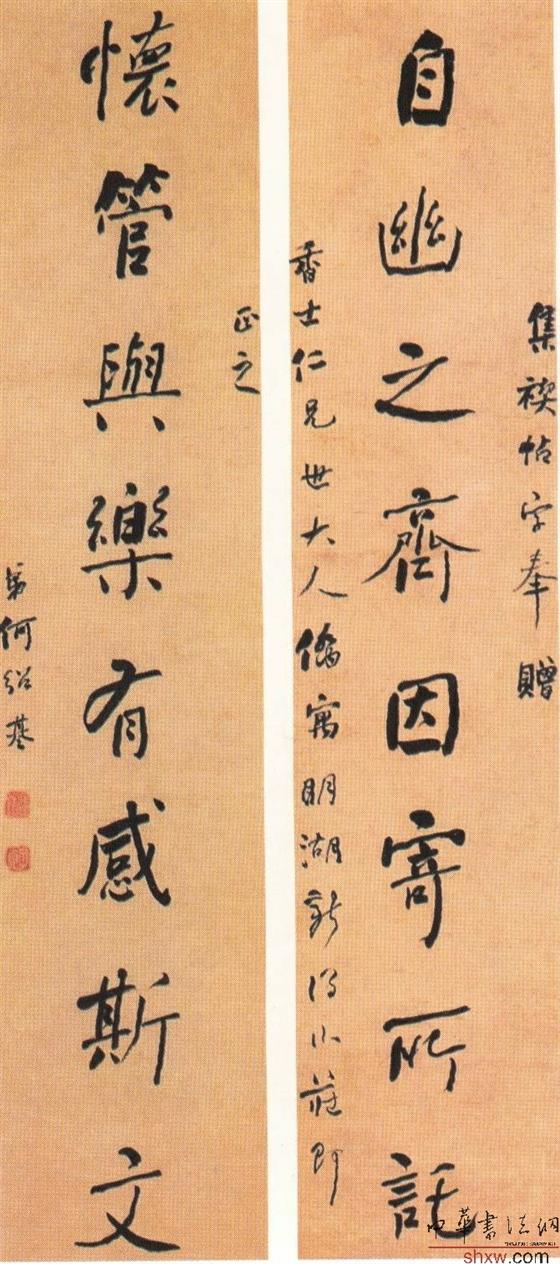 集禊帖字奉贈
自豳之齊因寄所託
香士仁兄世大人僑寓明湖新得小莊即
正之
懷管與樂有感斯文
弟何紹基
中華書法網
shxw.com